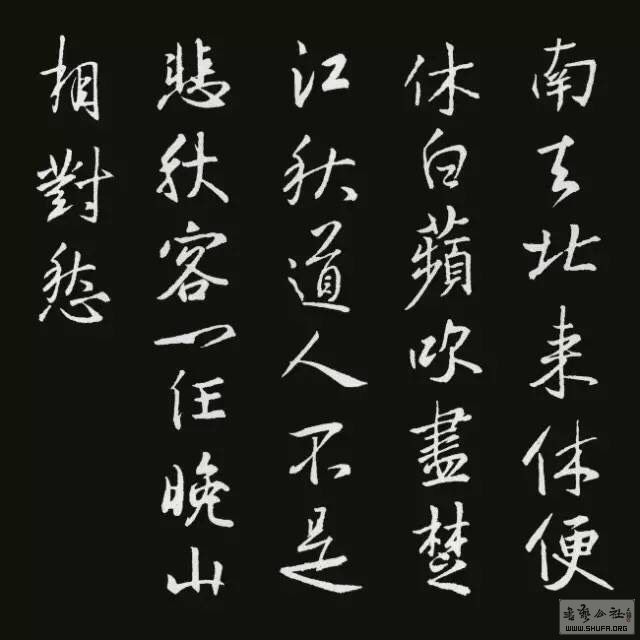 南去北来休便
休白蘋吹盡楚
江秋道人不是
悲秋客一任晚山
相對愁
WWW.SHUFA.ORG